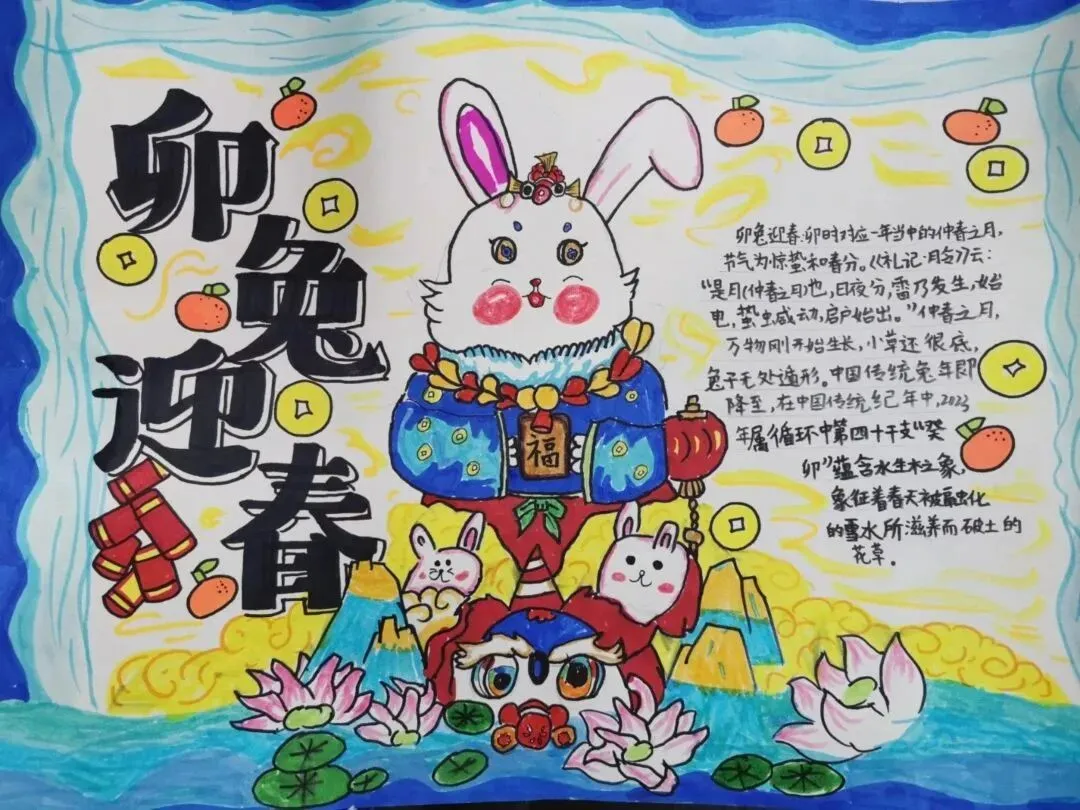 卯兔迎春
卯兔迎春:卯时对应一年当中的仲春之月,
节气为惊蛰和春分。《礼记·月令》云:
"是月(仲春之月)也,日夜分,雷乃发生,始
电,蛰虫咸动,启户始出。"仲春之月,
万物刚开始生长,小草还很底,
兔子无处遁形。中国传统兔年即
降至,在中国传统纪年中,2023
年属循环中第四十干支"癸
卯"蕴含水生木之象,
象征着春天被融化
的雪水所滋养而破土的
花草.
福